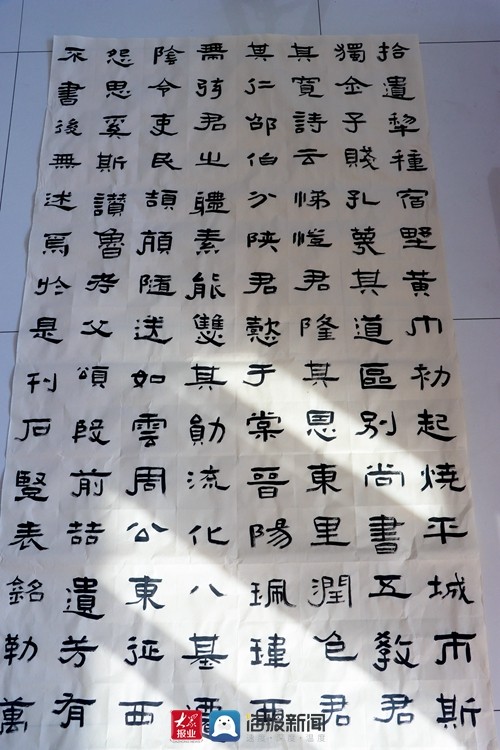 拾遺犂種宿野黃巾初起燒平城市斯
獨全子賤孔蔑其道區別尚書五教君
其寬詩云悌愷君隆其恩東里潤色君
其仁邵伯分陝君懿于棠晉陽珮瑋西
弦君之體素能雙其勛流化八基
陰令吏民頡頏隨送如雲周公東征西
怨思奚斯讚魯考父頌殷前喆遺芳有
不書後無述焉於是刊石豎表銘勒萬
大众报业
海报新闻